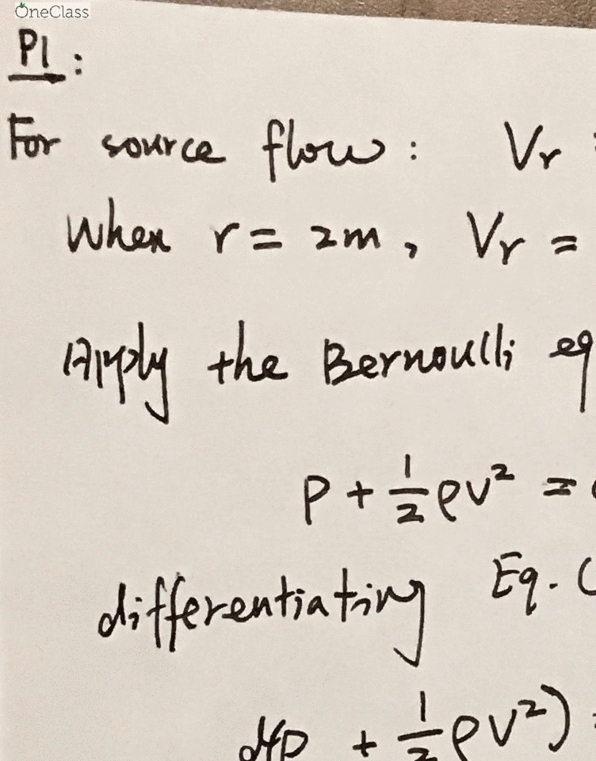 OneClass
P1:
For source flow: Vr
When r = 2m, Vr =
Apply the Bernoulli eq
P + 1/2 ρv² =
differentiating Eq. (
d(P + 1/2 ρv²) =